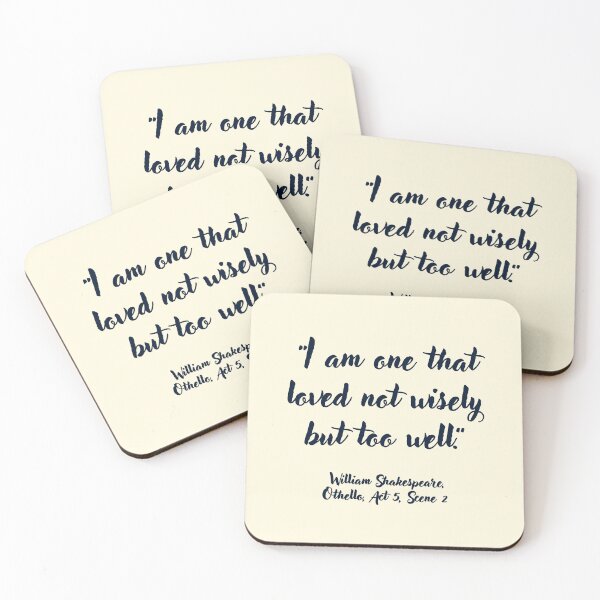 "I am one that
loved not wisely
ell."
"I am one that
loved not wisely
but too well."
"I am one that
loved not wisely
but too well."
William Shakespe
Othello, Act 5,
"I am one that
loved not wisely
but too well."
William Shakespeare,
Othello, Act 5, Scene 2